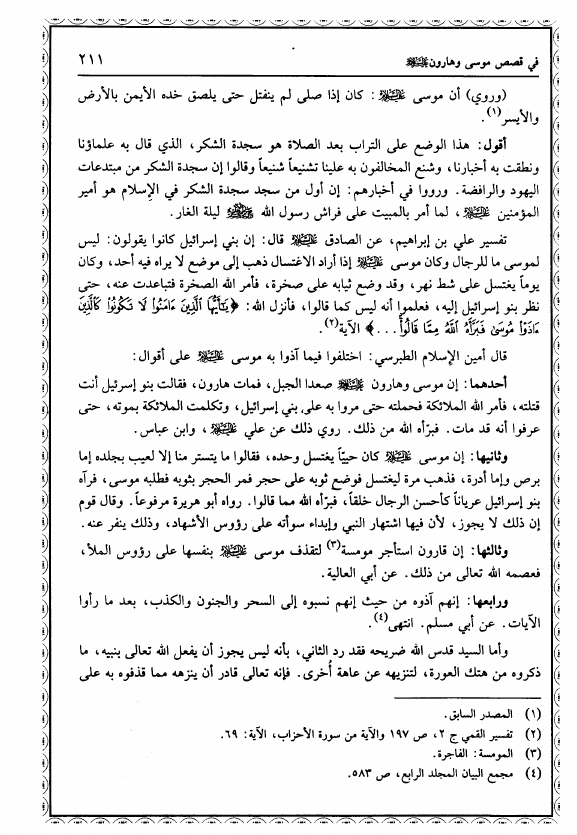 في قصص موسى وهارون عليه السلام ٢١١
(وروي) أن موسى عليه السلام: كان إذا صلى لم ينفتل حتى يلصق خده الأيمن بالأرض
والأيسر(١).
أقول: هذا الوضع على التراب بعد الصلاة هو سجدة الشكر، الذي قال به علماؤنا
ونطقت به أخبارنا، وشنع المخالفون به علينا تشنيعاً شنيعاً وقالوا إن سجدة الشكر من مبتدعات
اليهود والرافضة. ورووا في أخبارهم: إن أول من سجد سجدة الشكر في الإسلام هو أمير
المؤمنين عليه السلام، لما أمر بالمبيت على فراش رسول الله ﷺ ليلة الغار.
تفسير علي بن إبراهيم، عن الصادق عليه السلام قال: إن بني إسرائيل كانوا يقولون: ليس
لموسى ما للرجال وكان موسى عليه السلام إذا أراد الاغتسال ذهب إلى موضع لا يراه فيه أحد، وكان
يوماً يغتسل على شط نهر، وقد وضع ثيابه على صخرة، فأمر الله الصخرة فتباعدت عنه، حتى
نظر بنو إسرائيل إليه، فعلموا أنه ليس كما قالوا، فأنزل الله: ﴿يَٰٓأَيُّهَا ٱلَّذِينَ ءَامَنُوا۟ لَا تَكُونُوا۟ كَٱلَّذِينَ
ءَاذَوْا۟ مُوسَىٰ فَبَرَّأَهُ ٱللَّهُ مِمَّا قَالُوا۟...﴾ الآية(٢).
قال أمين الإسلام الطبرسي: اختلفوا فيما آذوا به موسى عليه السلام على أقوال:
أحدهما: إن موسى وهارون عليه السلام صعدا الجبل، فمات هارون، فقالت بنو إسرئيل أنت
قتلته، فأمر الله الملائكة فحملته حتى مروا به على بني إسرائيل، وتكلمت الملائكة بموته، حتى
عرفوا أنه قد مات. فبرّأه الله من ذلك. روي ذلك عن علي عليه السلام، وابن عباس.
وثانيها: إن موسى عليه السلام كان حييّاً يغتسل وحده، فقالوا ما يتستر منا إلا لعيب بجلده إما
برص وإما أدرة، فذهب مرة ليغتسل فوضع ثوبه على حجر فمر الحجر بثوبه فطلبه موسى، فرآه
بنو إسرائيل عرياناً كأحسن الرجال خلقاً، فبرّأه الله مما قالوا. رواه أبو هريرة مرفوعاً. وقال قوم
إن ذلك لا يجوز، لأن فيها اشتهار النبي وإبداء سوأته على رؤوس الأشهاد، وذلك ينفر عنه.
وثالثها: إن قارون استأجر مومسة(٣) لتقذف موسى عليه السلام بنفسها على رؤوس الملأ،
فعصمه الله تعالى من ذلك. عن أبي العالية.
ورابعها: إنهم آذوه من حيث إنهم نسبوه إلى السحر والجنون والكذب، بعد ما رأوا
الآيات. عن أبي مسلم. انتهى(٤).
وأما السيد قدس الله ضريحه فقد رد الثاني، بأنه ليس يجوز أن يفعل الله تعالى بنبيه، ما
ذكروه من هتك العورة، لتنزيهه عن عاهة أُخرى. فإنه تعالى قادر أن ينزهه مما قذفوه به على
(١) المصدر السابق.
(٢) تفسير القمي ج ٢، ص ١٩٧ والآية من سورة الأحزاب، الآية: ٦٩.
(٣) المومسة: الفاجرة.
(٤) مجمع البيان المجلد الرابع، ص ٥٨٣.